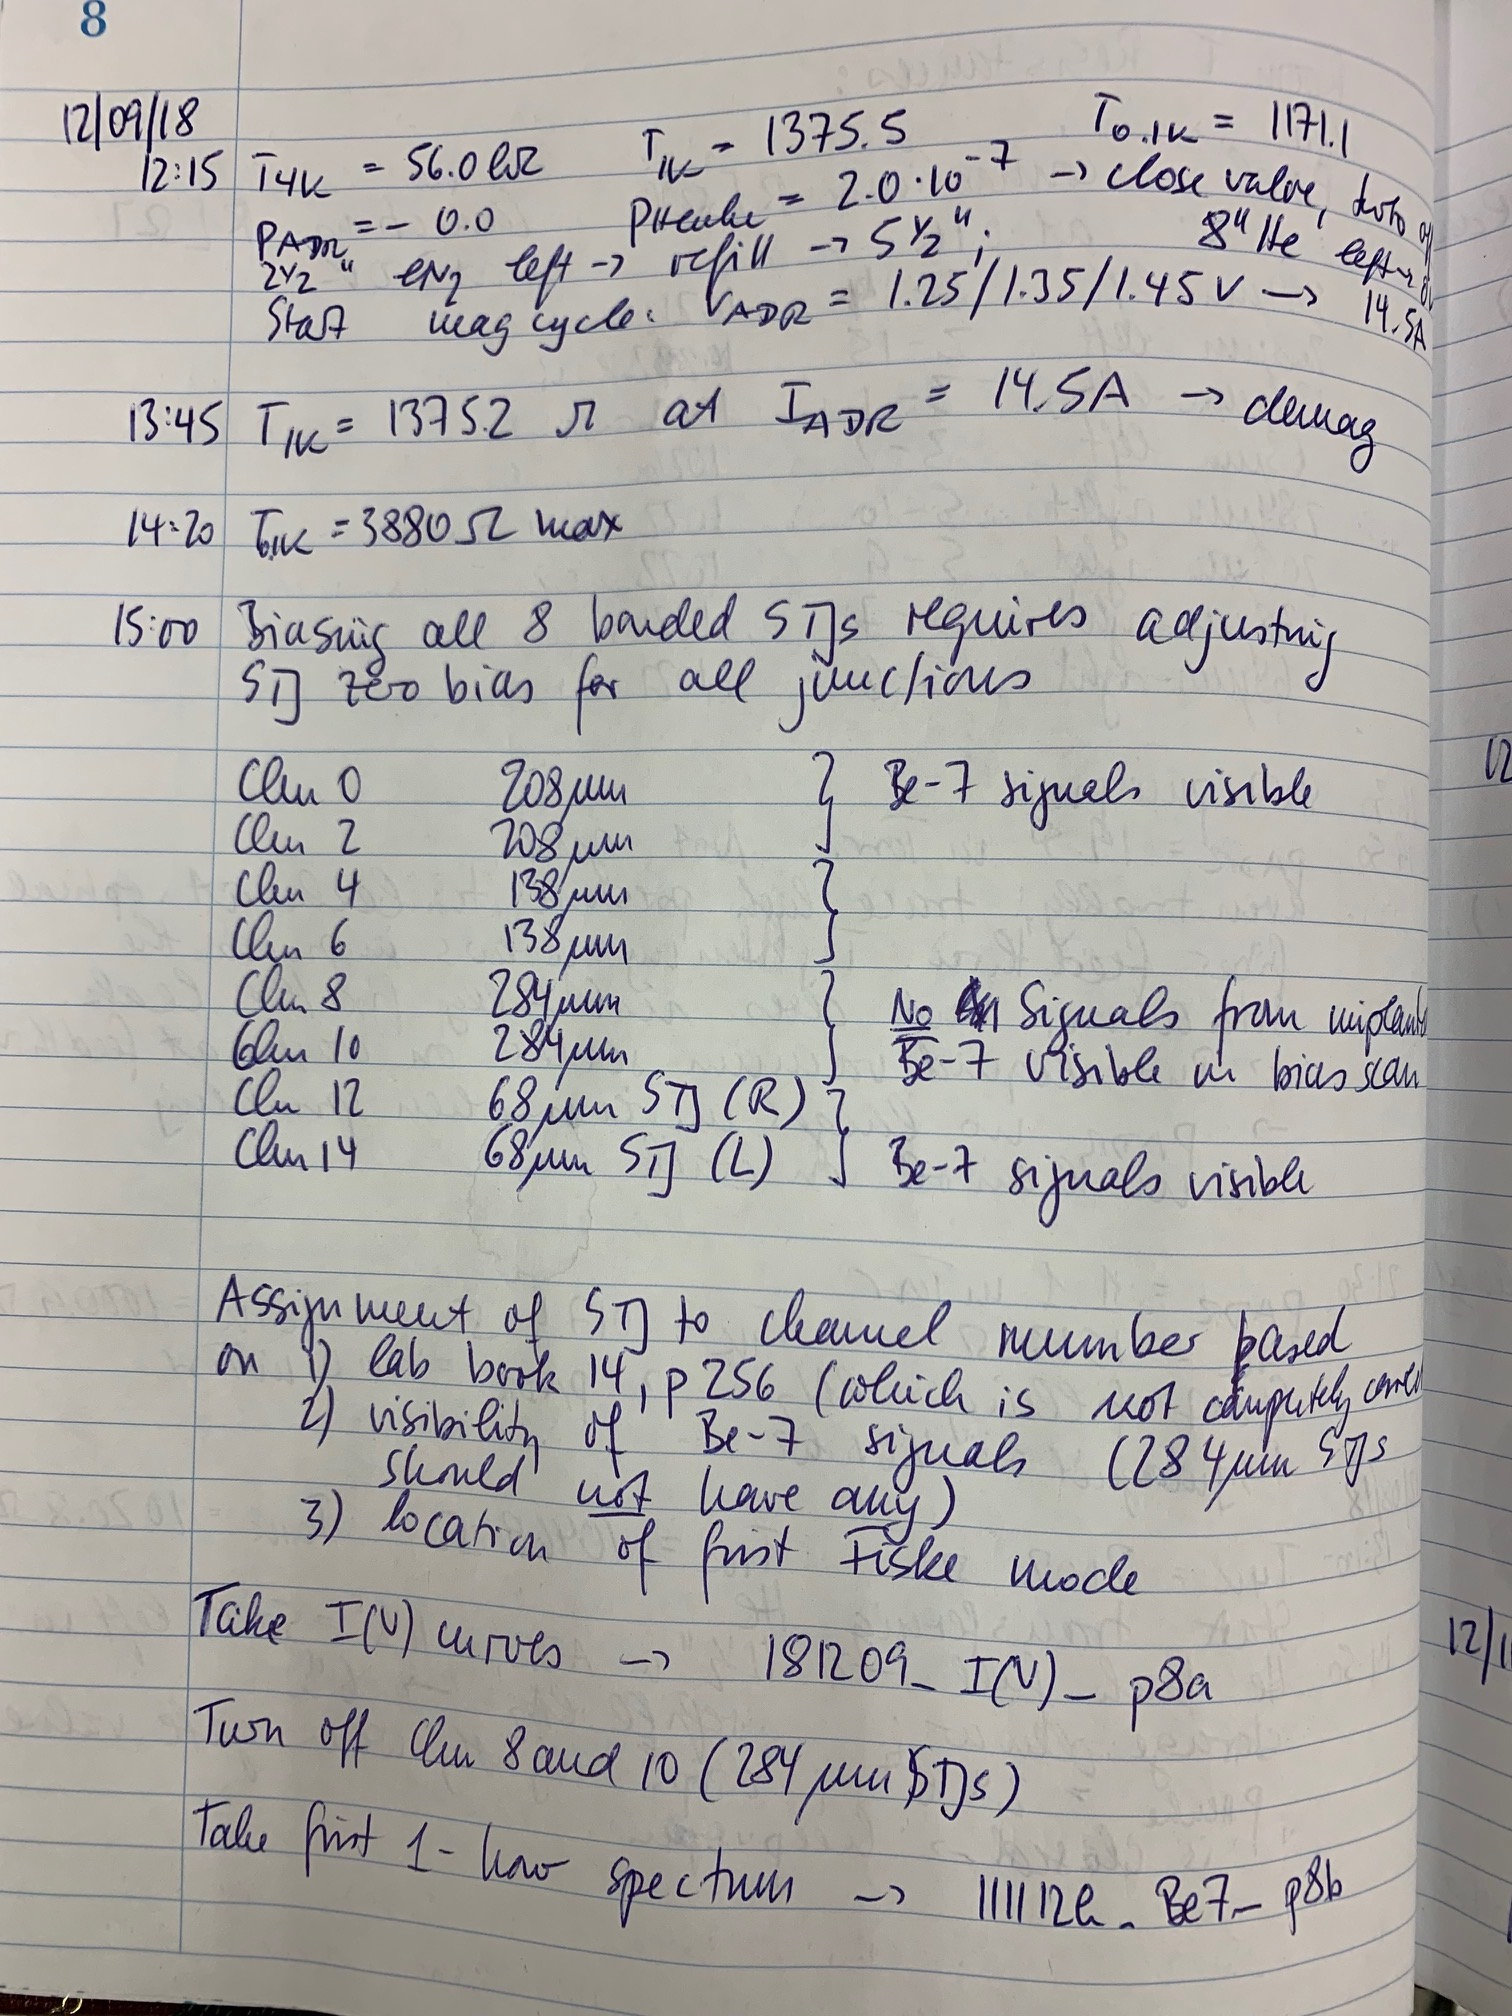 8
12/09/18
12:15 T4K = 56.0 kΩ T1K = 1375.5 T0.1K = 1171.1
PADR = - 0.0 = 2.0·10^-7 → close valve, turbo off
2 1/2 " lN2 left → refill → 5 1/2 "; 8" He left →
Start mag cycle: VADR = 1.25/1.35/1.45 V → 14.5A
13:45 T1K = 1375.2 Ω at IADR = 14.5A → demag
14:20 T0.1K = 3880 Ω max
15:00 Biasing all 8 bonded STJs requires adjusting
STJ zero bias for all junctions
Chn 0 208μm } Be-7 signals visible
Chn 2 208μm
Chn 4 138μm }
Chn 6 138μm
Chn 8 284μm } No Signals from implanted
Chn 10 284μm Be-7 visible in bias scan
Chn 12 68μm STJ (R) }
Chn 14 68μm STJ (L) Be-7 signals visible
Assignment of STJ to channel number based
on 1) lab book 14, p 256 (which is not completely
2) visibility of Be-7 signals (284μm STJs
should not have any)
3) location of first Fiske mode
Take I(V) curves → 181209_I(V)_p8a
Turn off Chn 8 and 10 (284 μm STJs)
Take first 1-hour spectrum → _Be7_p8b
12
12/1